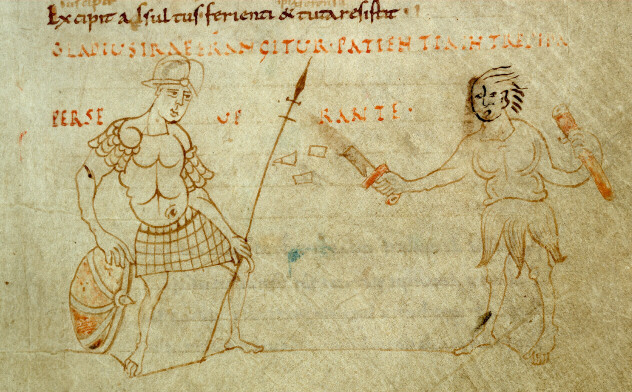 Excipit assultus ferienti & tuta resistit·
GLADIUS IRAE FRANGITUR · PATIENTIA INTREPIDA
PERSE UE RANTE·